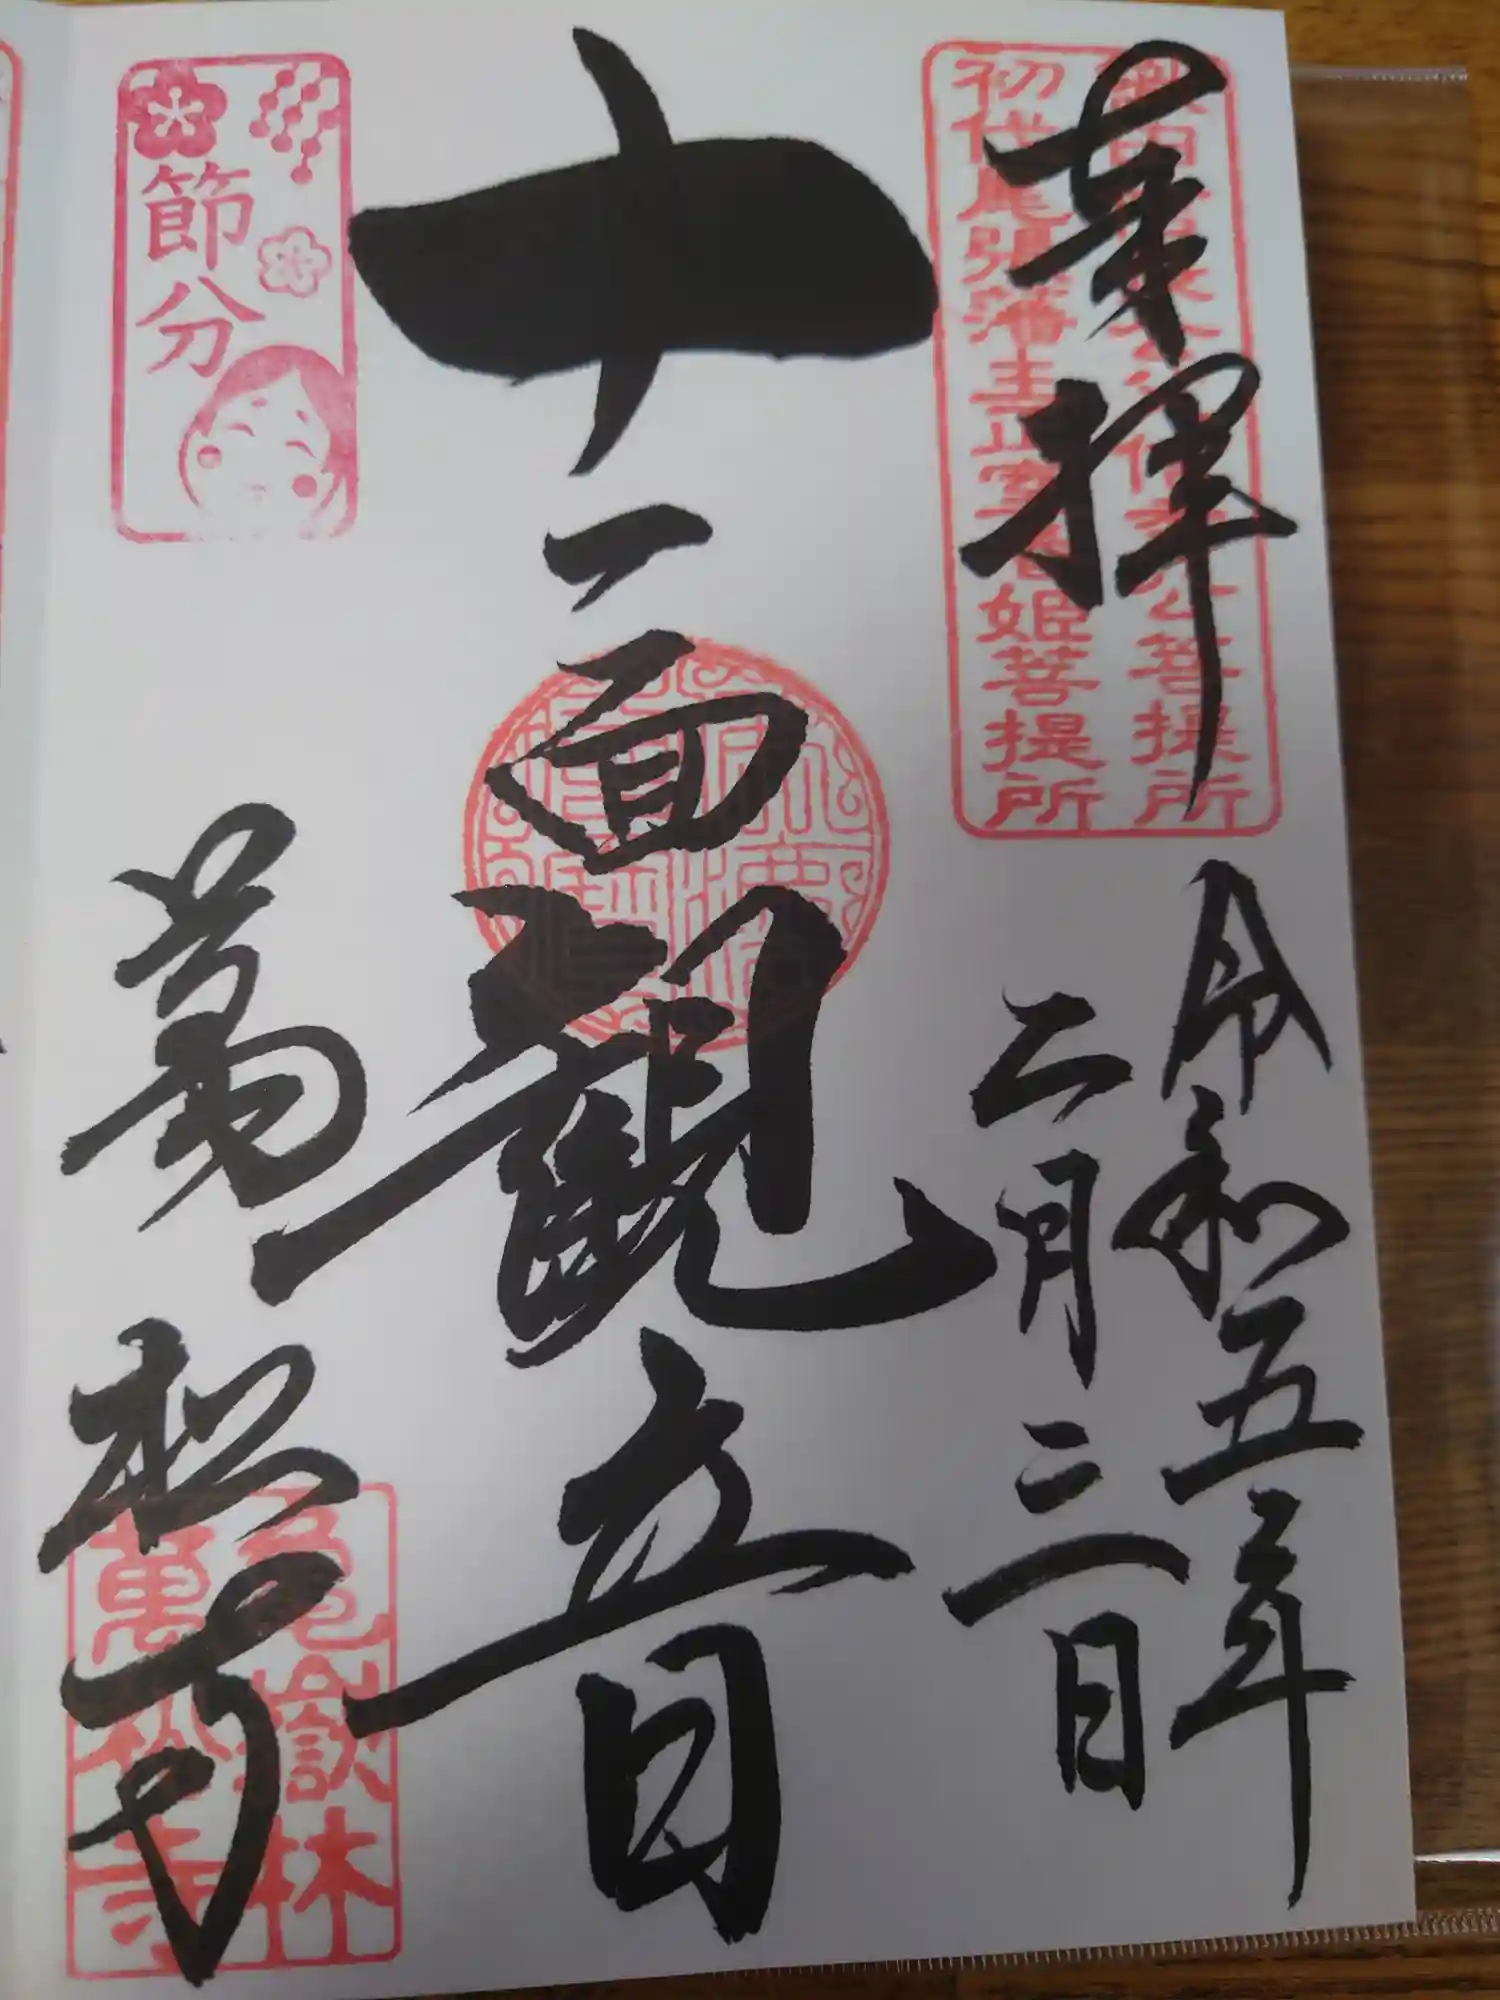 奉拝
令和五年
二月三日
初代尾張藩主正室春姫菩提所
十一面観音
萬松寺
節分
亀嶽林
萬松寺